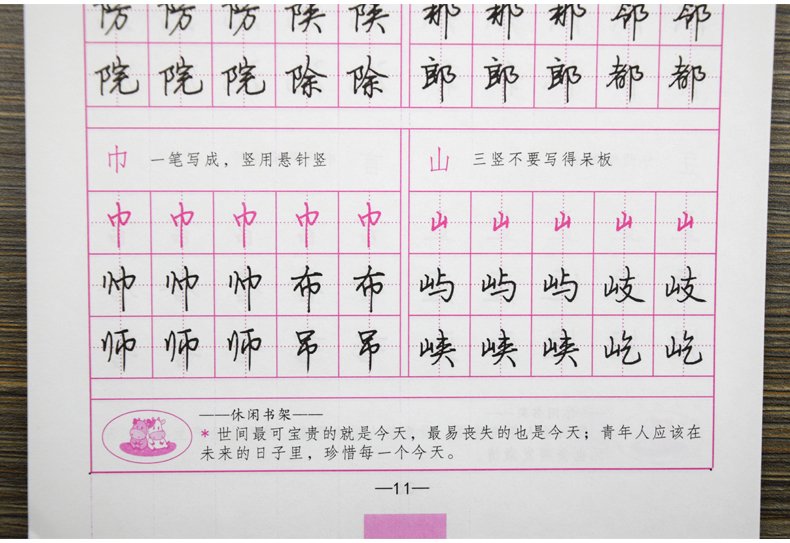 防 防 防 陕 陕 那 那 那 邻 邻
院 院 院 除 除 郎 郎 郎 都 都
巾 一笔写成，竖用悬针竖
山 三竖不要写得呆板
巾 巾 巾 巾 巾 山 山 山 山 山
帅 帅 帅 布 布 屿 屿 屿 岐 岐
师 师 师 吊 吊 峡 峡 峡 屹 屹
——休闲书架——
*世间最可宝贵的就是今天，最易丧失的也是今天；青年人应该在
未来的日子里，珍惜每一个今天。
—11—